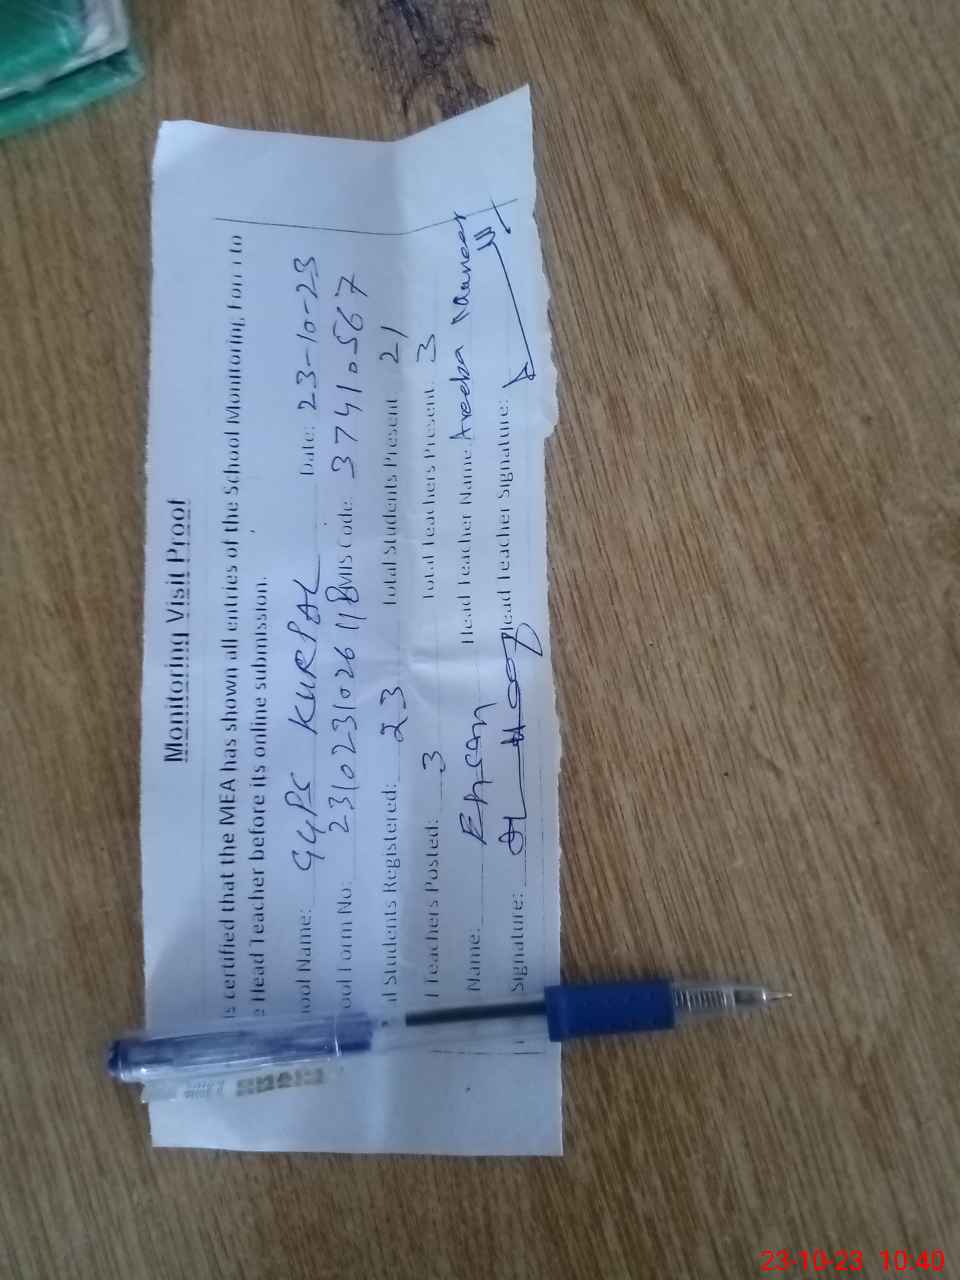 Monitoring Visit Proof
is certified that the MEA has shown all entries of the School Monitoring Form to
e Head Teacher before its online submission.
ool Name: GGPS KURPAL Date: 23-10-23
ool Form No: 231023102611 EMIS Code: 37410567
al Students Registered: 23 Total Students Present 21
l Teachers Posted: 3 Total Teachers Present. 3
Name: Ehsan Head Teacher Name: Areeba Muneer
Signature: Head Teacher Signature:
23-10-23 10:40